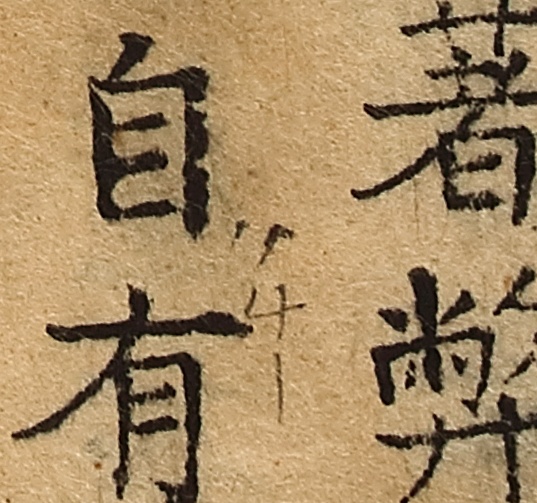 著弊
自有